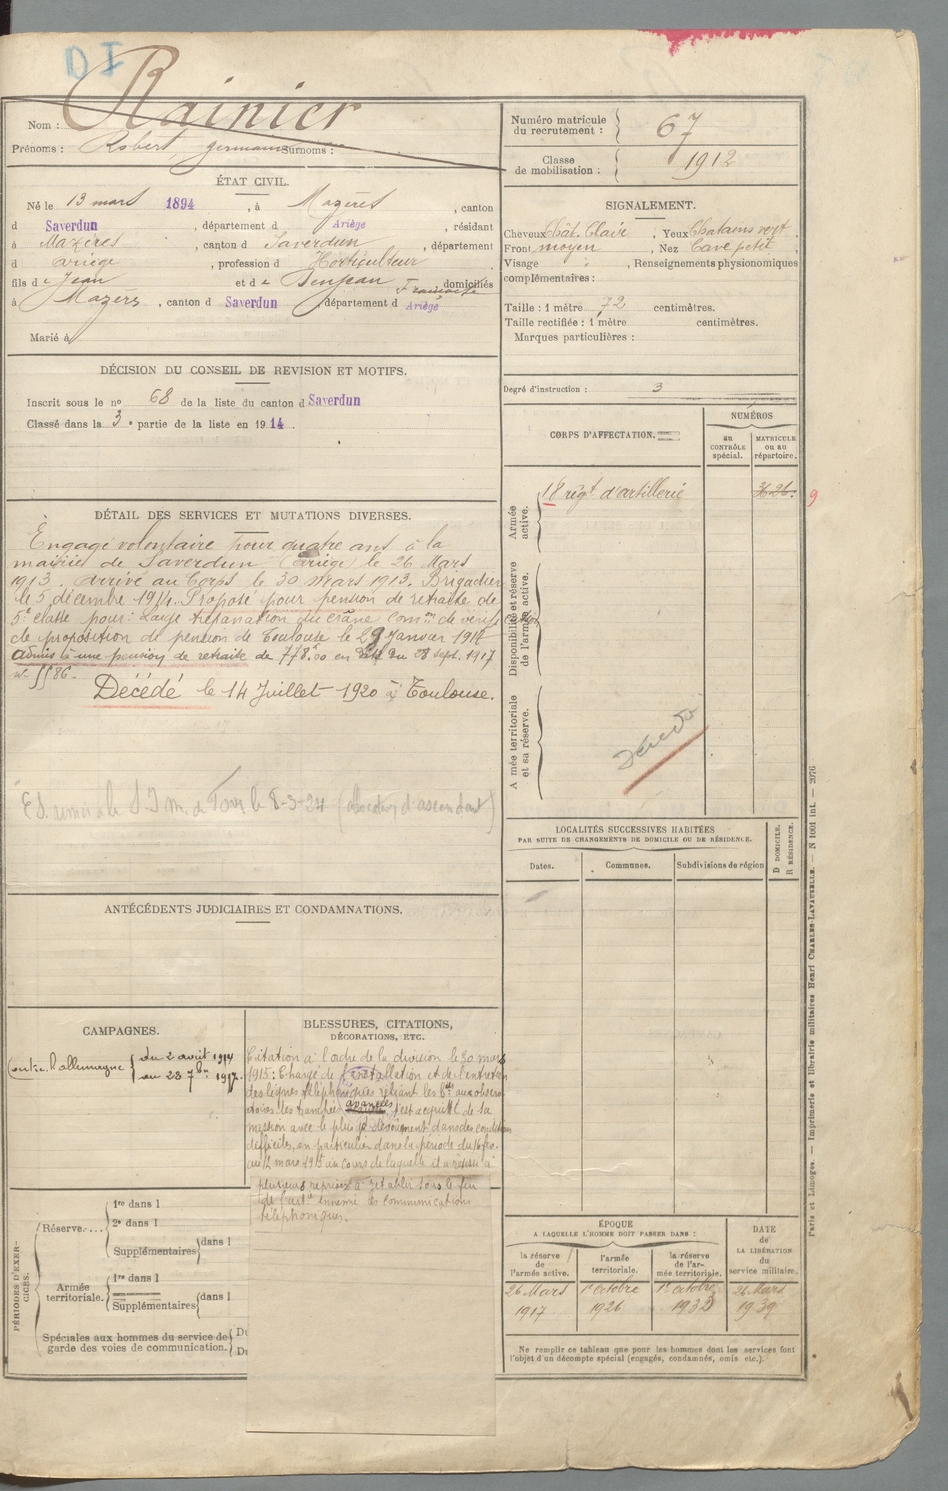 DI
Nom : Rainier
Prénoms : Robert, germain Surnoms :
Numéro matricule du recrutement : 67
Classe de mobilisation : 1912
ÉTAT CIVIL.
Né le 13 mars 1894, à Mazères, canton
d Saverdun, département d Ariège, résidant
à Mazères, canton d Saverdun, département
d Ariège, profession d Horticulteur
fils de Jean et de Françoise domiciliés
à Mazères, canton d Saverdun, département d Ariège
Marié à
SIGNALEMENT.
Cheveux Chât. Clair, Yeux Chatains vert.
Front moyen, Nez Cave petit
Visage , Renseignements physionomiques
complémentaires :
Taille : 1 mètre 72 centimètres.
Taille rectifiée : 1 mètre centimètres.
Marques particulières :
Degré d'instruction : 3
DÉCISION DU CONSEIL DE REVISION ET MOTIFS.
Inscrit sous le no 68 de la liste du canton d Saverdun
Classé dans la 3e partie de la liste en 1914.
DÉTAIL DES SERVICES ET MUTATIONS DIVERSES.
Engagé volontaire pour quatre ans à la
mairie de Saverdun (Ariège) le 26 Mars
1913. Arrivé au Corps le 30 Mars 1913. Brigadier
le 5 décembre 1914. Proposé pour pension de retraite de
5e classe pour : Large trépanation du crâne comm. de vérification
de proposition de pension de Toulouse le 29 Janvier 1917
Admis à une pension de retraite de 778f,00 en date du 28 sept. 1917
Décédé le 14 Juillet 1920 à Toulouse.
(allocation d'ascendant)
CORPS D'AFFECTATION.
NUMÉROS
au CONTRÔLE spécial.
MATRICULE OU AU répertoire.
Armée active.
18 régt d'artillerie
9
Disponibilité et réserve de l'armée active.
Armée territoriale et sa réserve.
LOCALITÉS SUCCESSIVES HABITÉES
PAR SUITE DE CHANGEMENTS DE DOMICILE OU DE RÉSIDENCE.
Dates.
Communes.
Subdivisions de région
D DOMICILE.
R RÉSIDENCE.
ANTÉCÉDENTS JUDICIAIRES ET CONDAMNATIONS.
CAMPAGNES.
Contre l'allemagne du 2 août 1914
au 28 7bre 1917.
BLESSURES, CITATIONS,
DÉCORATIONS, ETC.
Citation à l'ordre de la division le 30 mars
1915 : Chargé de l'installation et de l'entretien
des lignes téléphoniques reliant les bies aux observa-
toires des tranchées avancées s'est acquitté de sa
mission avec le plus gd dévouement dans des conditions
difficiles, en particulier dans la période du 16 fév.
au 12 mars 1915 au cours de laquelle il a réussi à
plusieurs reprises à rétablir sous le feu
de l'arte ennemie les communications
téléphoniques.
PÉRIODES D'EXERCICES.
Réserve....
1re dans l
2e dans l
Supplémentaires dans l
Armée territoriale.
1re dans l
Supplémentaires dans l
Spéciales aux hommes du service de garde des voies de communication.
Du
Du
ÉPOQUE
A LAQUELLE L'HOMME DOIT PASSER DANS :
la réserve de l'armée active.
l'armée territoriale.
la réserve de l'armée territoriale.
DATE de LA LIBÉRATION du service militaire.
26 Mars 1917
1er octobre 1926
1er octobre 1932
26 Mars 1939
Ne remplir ce tableau que pour les hommes dont les services font
l'objet d'un décompte spécial (engagés, condamnés, omis etc.).
Paris et Limoges. — Imprimerie et librairie militaires Henri CHARLES-LAVAUZELLE. — N 1001 int. — 2076